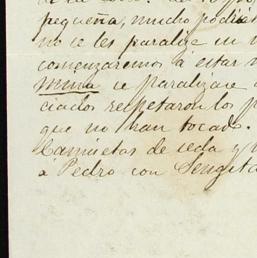 pequeña, mucho podria
no se les paralize in
comenzaremos á estar
mina se paralizase
ciados respetaron los p
que no han tocado.
Camisetas de seda y
á Pedro con